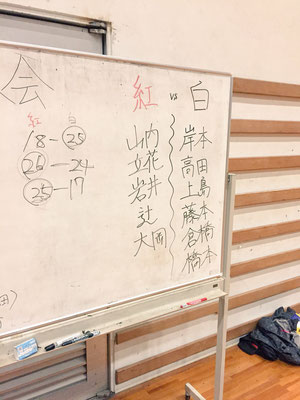 会
紅 白
18-25
26-24
25-17
紅 vs 白
山内
立花
岩井
辻
大岡
岸本
高田
上島
藤本
倉橋
橋本